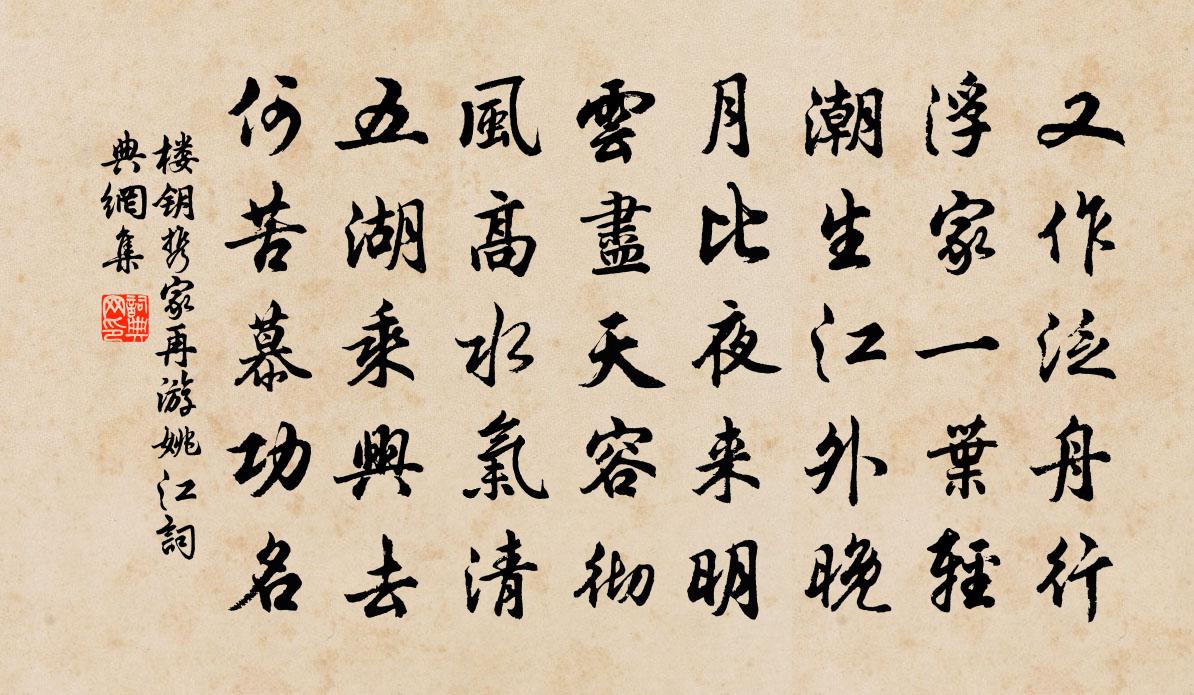 又作泛舟行
浮家一葉輕
潮生江外晚
月比夜来明
雲盡天容彻
風高水氣清
五湖乘興去
何苦慕功名
楼钥携家再游姚江詞
典網集
詞典网印